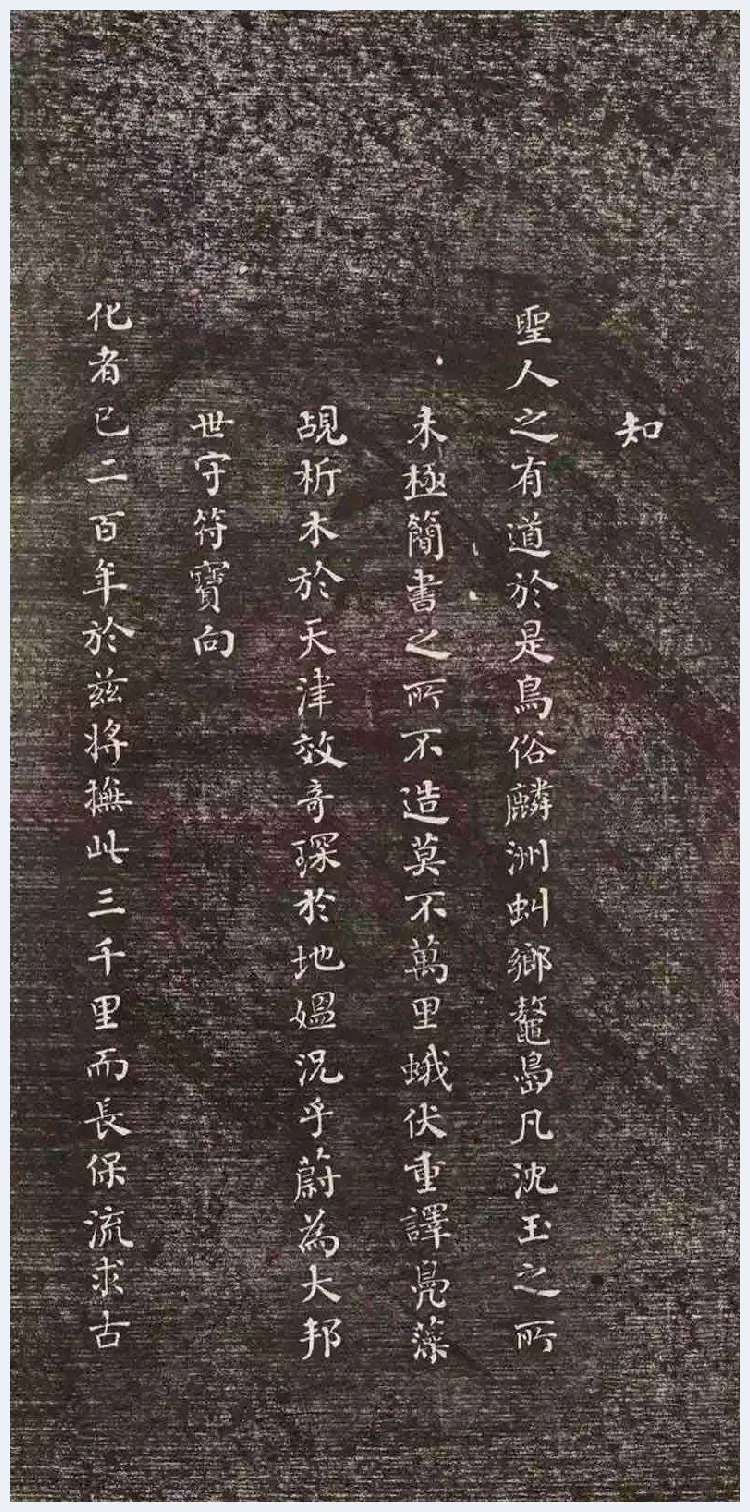 知
聖人之有道於是鳥俗麟洲虯鄉鼇島凡沈玉之所
未極簡書之所不造莫不萬里蛾伏重譯鳧藻
覘析木於天津效奇琛於地媼況乎蔚為大邦
世守符寶向
化者已二百年於茲將撫此三千里而長保流求古